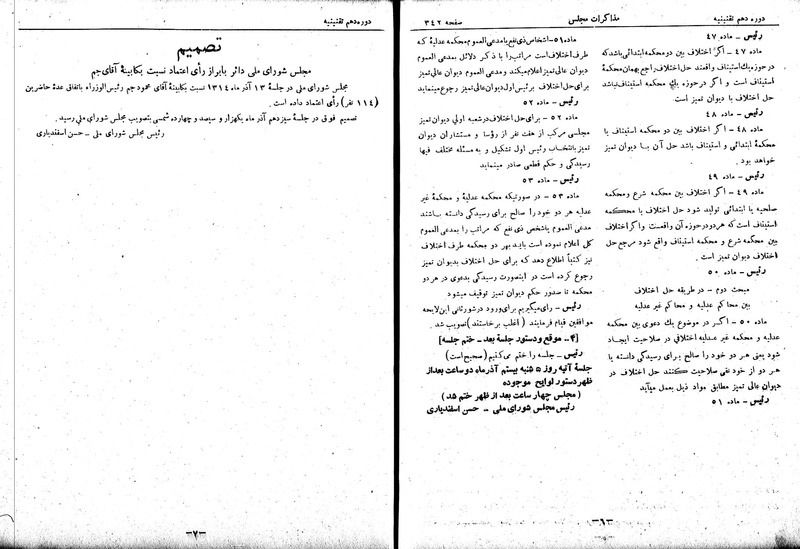 دوره دهم تقنینیه
مذاکرات مجلس
صفحه ۳۴۲
رئیس – ماده ۴۷
ماده ۴۷ – اگر اختلاف بین دو محکمه ابتدائی باشد که
در حوزه یك استیناف واقعند حل اختلاف راجع بهمان محکمهٔ
استیناف است و اگر در حوزه یك محکمه استیناف نباشد
حل اختلاف با دیوان تمیز است.
رئیس – ماده ۴۸
ماده ۴۸ – اگر اختلاف بین دو محکمه استیناف یا
محکمهٔ ابتدائی و استیناف باشد حل آن با دیوان تمیز
خواهد بود.
رئیس – ماده ۴۹
ماده ۴۹ – اگر اختلاف بین محکمه شرع و محکمه
صلحیه یا ابتدائی تولید شود حل اختلاف با محکمه
استیناف است که هر دو در حوزه آن واقعست و اگر اختلاف
بین محکمه شرع و محکمه استیناف واقع شود مرجع حل
اختلاف دیوان تمیز است.
رئیس – ماده ۵۰
مبحث دوم – در طریقه حل اختلاف
بین محاکم عدلیه و محاکم غیر عدلیه
ماده ۵۰ – اگر در موضوع یك دعوی بین محکمه
عدلیه و محکمه غیر عدلیه اختلافی در صلاحیت ایجاد
شود یعنی هر دو خود را صالح برای رسیدگی دانسته یا
هر دو از خود نفی صلاحیت کنند حل اختلاف در
دیوان عالی تمیز مطابق مواد ذیل بعمل میآید
رئیس – ماده ۵۱
ماده ۵۱ – اشخاص ذی نفع یا مدعی العموم محکمه عدلیهٔ که
طرف اختلاف است مراتب را با ذکر دلائل بمدعی العموم
دیوان عالی تمیز اعلام میکند و مدعی العموم دیوان عالی تمیز
برای حل اختلاف برئیس اول دیوان عالی تمیز رجوع مینماید
رئیس – ماده ۵۲
ماده ۵۲ – برای حل اختلاف در شعبه اولی دیوان تمیز
مجلسی مرکب از هفت نفر از رؤسا و مستشاران دیوان
تمیز بانتخاب رئیس اول تشکیل و به مسئله مختلف فیها
رسیدگی و حکم قطعی صادر مینماید
رئیس – ماده ۵۳
ماده ۵۳ – در صورتیکه محکمه عدلیهٔ و محکمهٔ غیر
عدلیه هر دو خود را صالح برای رسیدگی دانسته باشند
مدعی العموم یا شخص ذی نفع که مراتب را بمدعی العموم
کل اعلام نموده است باید بهر دو محکمه طرف اختلاف
نیز کتباً اطلاع دهد که برای حل اختلاف بدیوان تمیز
رجوع کرده است در اینصورت رسیدگی بدعوی در هر دو
محکمه تا صدور حکم دیوان تمیز توقیف میشود
رئیس – رأی میگیریم برای ورود در شور ثانی این لایحه
موافقین قیام فرمایند (اغلب برخاستند) تصویب شد.
[۴ – موقع و دستور جلسهٔ بعد – ختم جلسه]
رئیس – جلسه را ختم می کنیم (صحیح است)
جلسهٔ آتیه روز ۵ شنبه بیستم آذر ماه دو ساعت بعد از
ظهر دستور لوایح موجوده
(مجلس چهار ساعت بعد از ظهر ختم شد)
رئیس مجلس شورای ملی – حسن اسفندیاری
–۶–
دوره دهم تقنینیه
تصمیم
مجلس شورای ملی دائر بابراز رأی اعتماد نسبت بکابینهٔ آقای جم
مجلس شورای ملی در جلسهٔ ۱۳ آذر ماه ۱۳۱۴ نسبت بکابینهٔ آقای محمود جم رئیس الوزراء باتفاق عدهٔ حاضر بین
(۱۱۴ نفر) رأی اعتماد داده است.
تصمیم فوق در جلسهٔ سیزدهم آذر ماه یکهزار و سیصد و چهارده شمسی بتصویب مجلس شورای ملی رسید.
رئیس مجلس شورای ملی – حسن اسفندیاری
–۷–